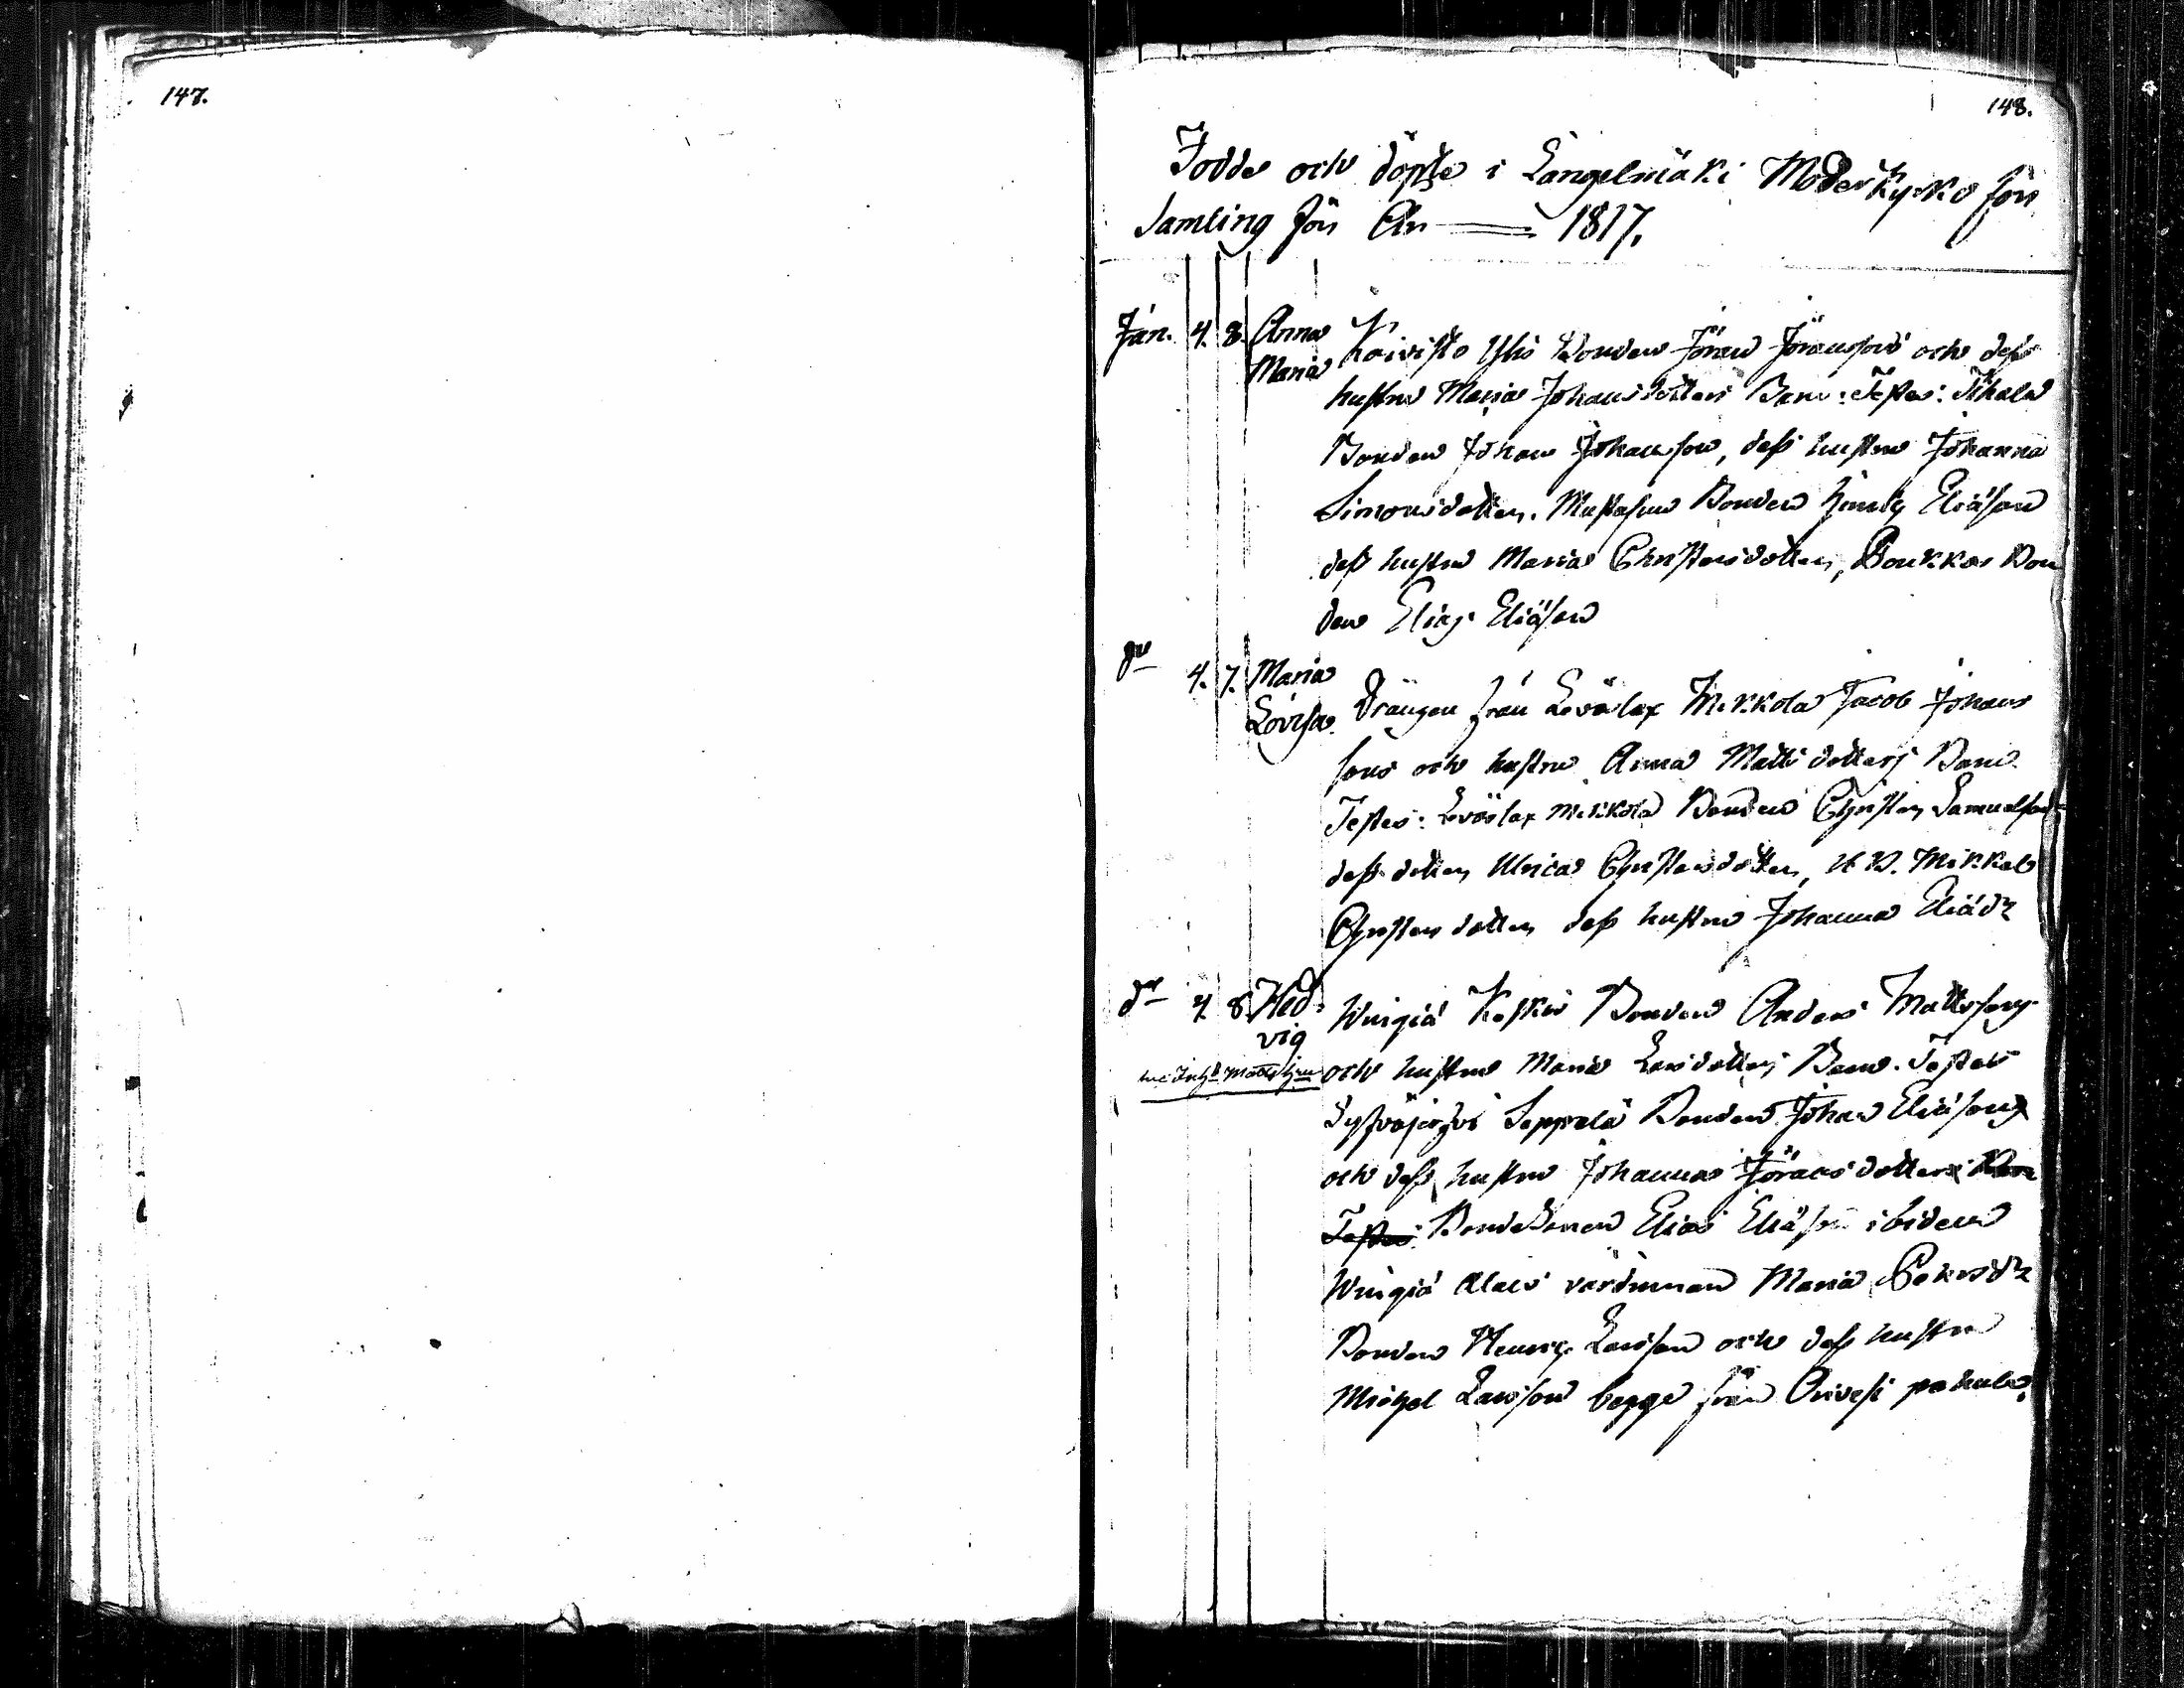 147.
148.
Födde och döpte i Längelmäki Moderkyrko för
samling för År 1817.
Jan. 4. 8. Anna Maria Koivisto Bonden Jöran Jöranssons och dess
hustru Maria Johansdotters Barn: Testes:
Bonden Johan Johansson, dess hustru Johanna
Simonsdotter. Bonden Eliässon
dess hustru Maria Christersdotter, Bon
den Elias Eliässon
do 4. 7. Maria Lovisa Drängen från Leväslax Mikkola Jacob Johans
sons och hustru Anna Mattsdotters Barn
Testes: Leväslax Mikkola Bonden Christer Samuelsson
dess dotter Ulrica Christersdotter, Mikkel
Christersdotter dess hustru Johanna Eliädr
dr 4. 8. Hed
vig Bonden Anders Mattssons
och hustru Maria Larsdotters Barn. Testes
Seppälä Bonden Johan Eliässon
och dess hustru Johanna Jöransdotter
Testes Bondesonen Elias Eliässon ibidem
värdinnan Maria
Bonden Henric Larsson och dess hustru
Michel Larsson begge från Orivesi